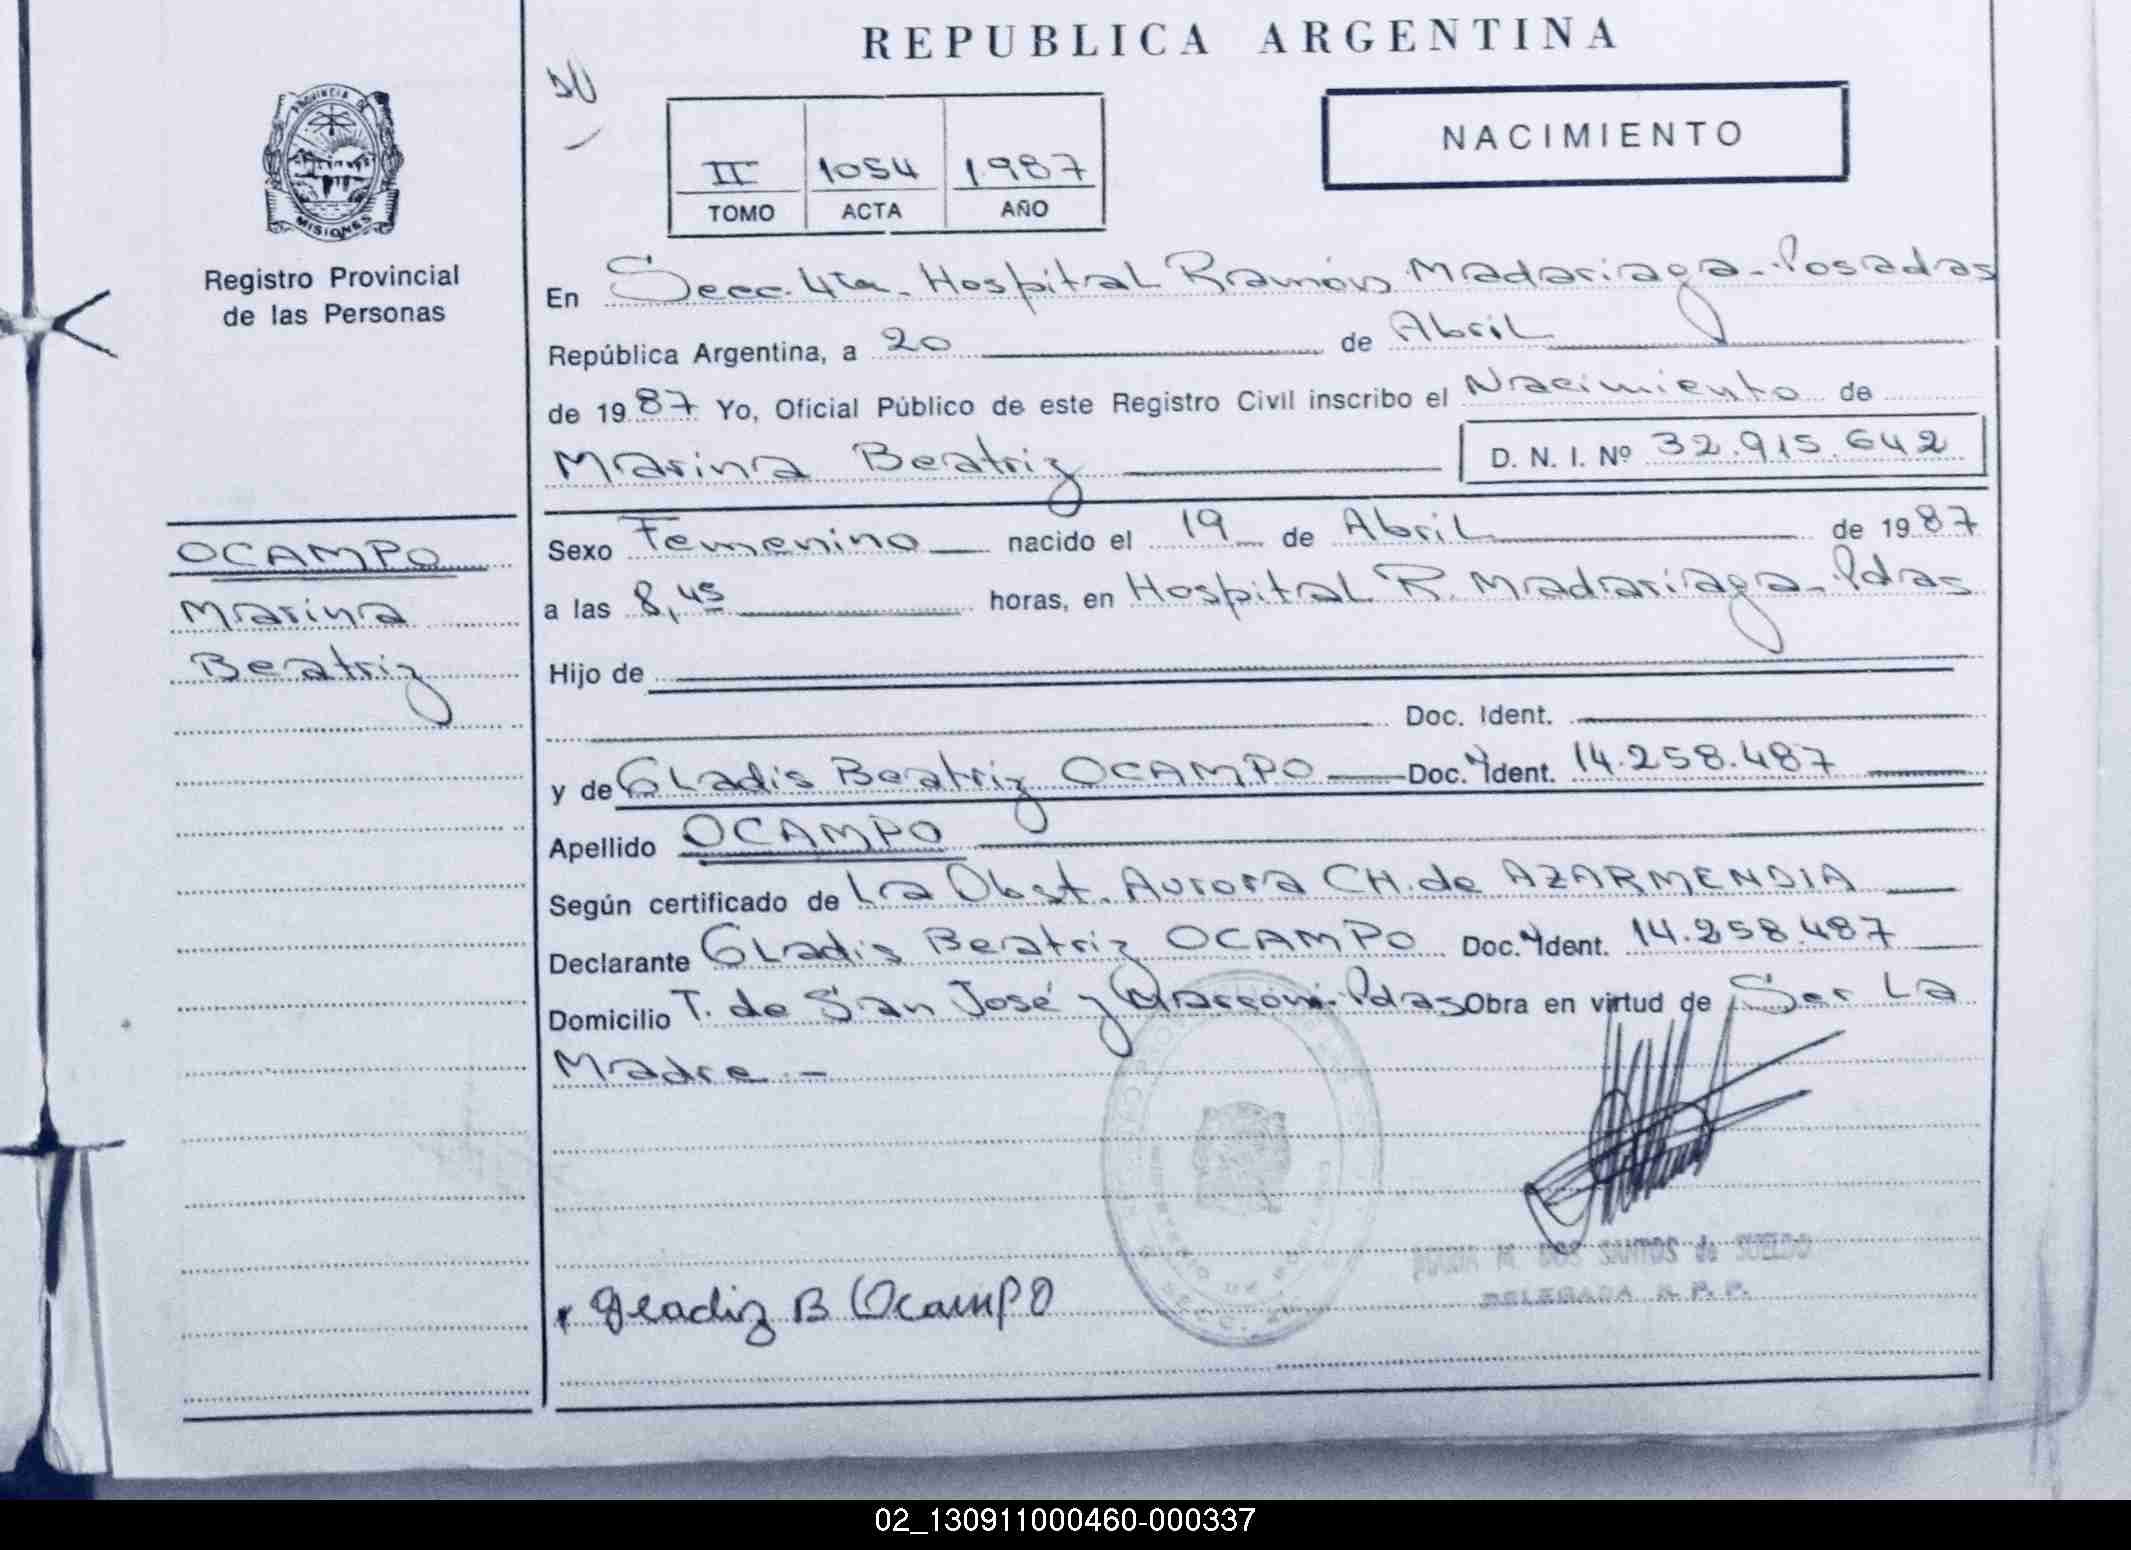 REPUBLICA ARGENTINA
NACIMIENTO
II 1054 1987
TOMO ACTA AÑO
PROVINCIA DE
MISIONES
Registro Provincial
de las Personas
OCAMPO
Marina
Beatriz
En Secc. 4ta. Hospital Ramón Madariaga - Posadas
República Argentina, a 20 de Abril
de 1987 Yo, Oficial Público de este Registro Civil inscribo el Nacimiento de
Marina Beatriz D. N. I. Nº 32.915.642
Sexo Femenino nacido el 19 de Abril de 1987
a las 8,45 horas, en Hospital R. Madariaga - Pdas
Hijo de
Doc. Ident.
y de Gladis Beatriz OCAMPO Doc. Ident. 14.258.487
Apellido OCAMPO
Según certificado de La Obst. Aurora CH. de AZARMENDIA
Declarante Gladis Beatriz OCAMPO Doc. Ident. 14.258.487
Domicilio T. de San José y Marconi - Pdas Obra en virtud de Ser La
Madre -
M. DOS SANTOS de SUELDO
DELEGADA R. P. P.
Gladiz B OcamPO
02_130911000460-000337